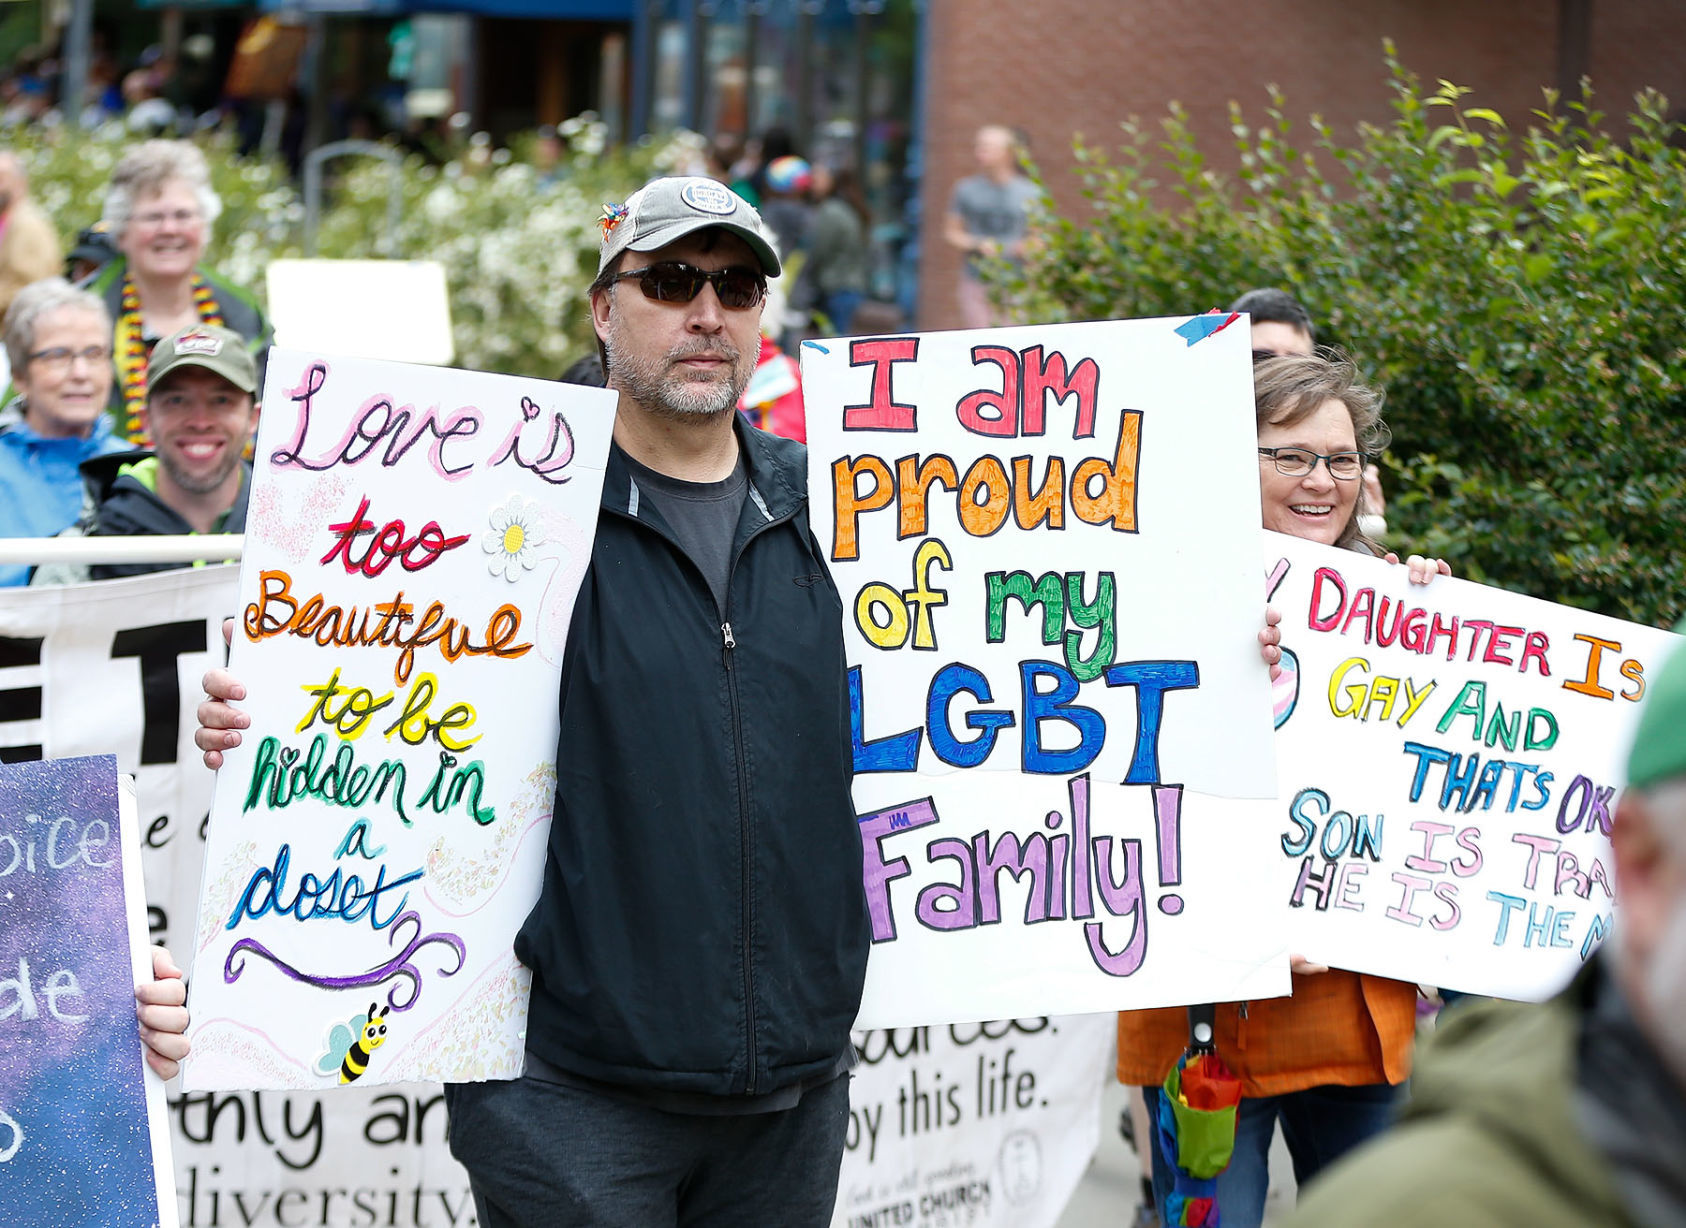 Love is
too
Beautiful
to be
hidden in
a
closet
I am
proud
of my
LGBT
Family!
DAUGHTER IS
GAY AND
THATS OK
SON IS TRA
HE IS THE M
ET
oice
de
thly an
diversity.
by this life.
God is still speaking
UNITED CHURCH